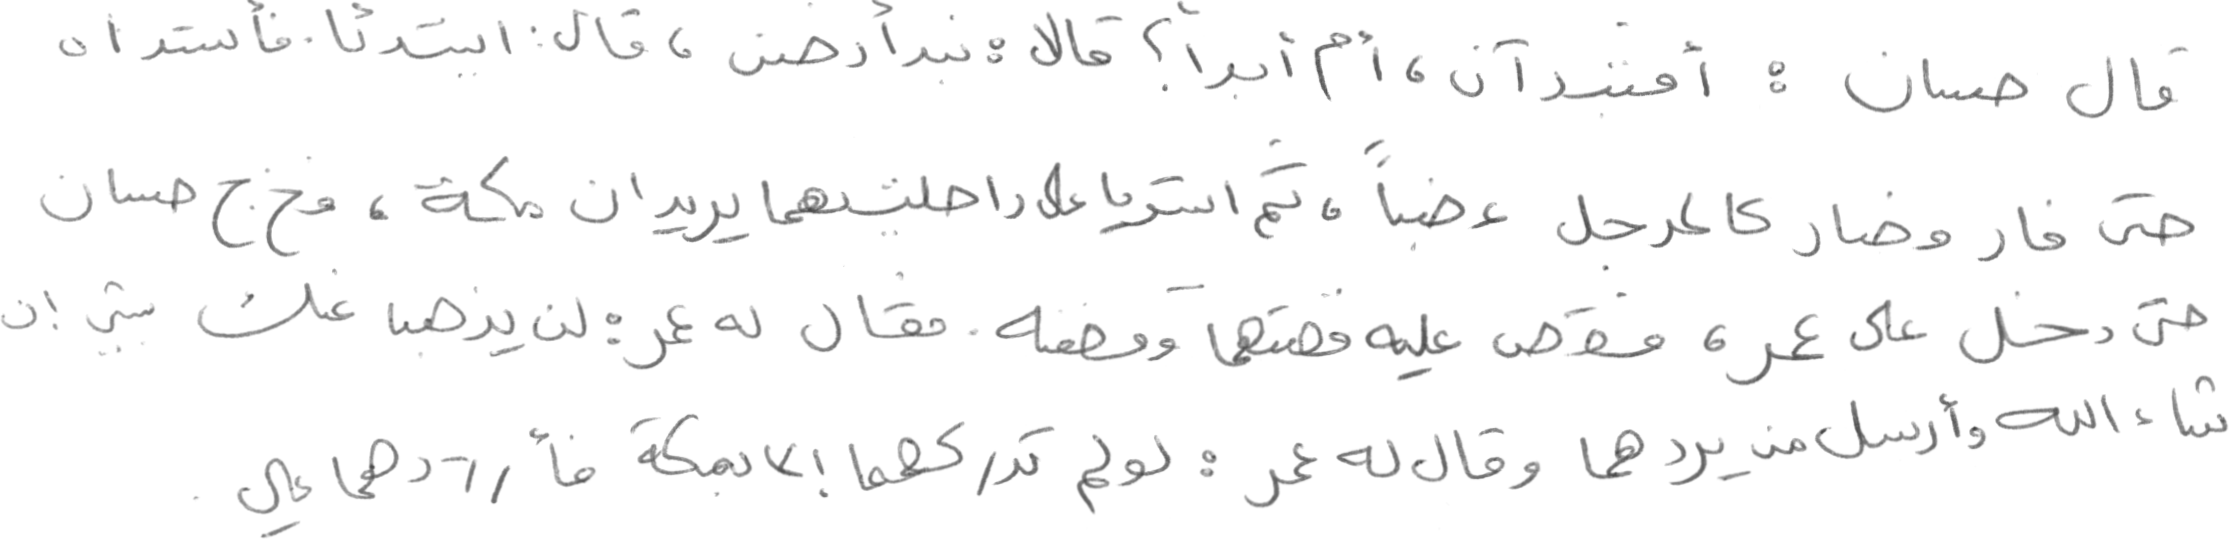 قال حسان : أفتنشدآن ، أم أبدأ؟ قالا : نبدأ نحن ، قال : ابتدئا . فأنشداه
حتى فار وصار كالمرجل غضباً ، ثم استويا على راحلتيهما يريدان مكة ، وخرج حسان
حتى دخل على عمر ، فقص عليه قصتهما وقصته . فقال له عمر : لن يذهبا عنك بشئ إن
شاء الله وأرسل من يردهما وقال له عمر : لو لم تدركهما إلا بمكة فأرددهما علي .